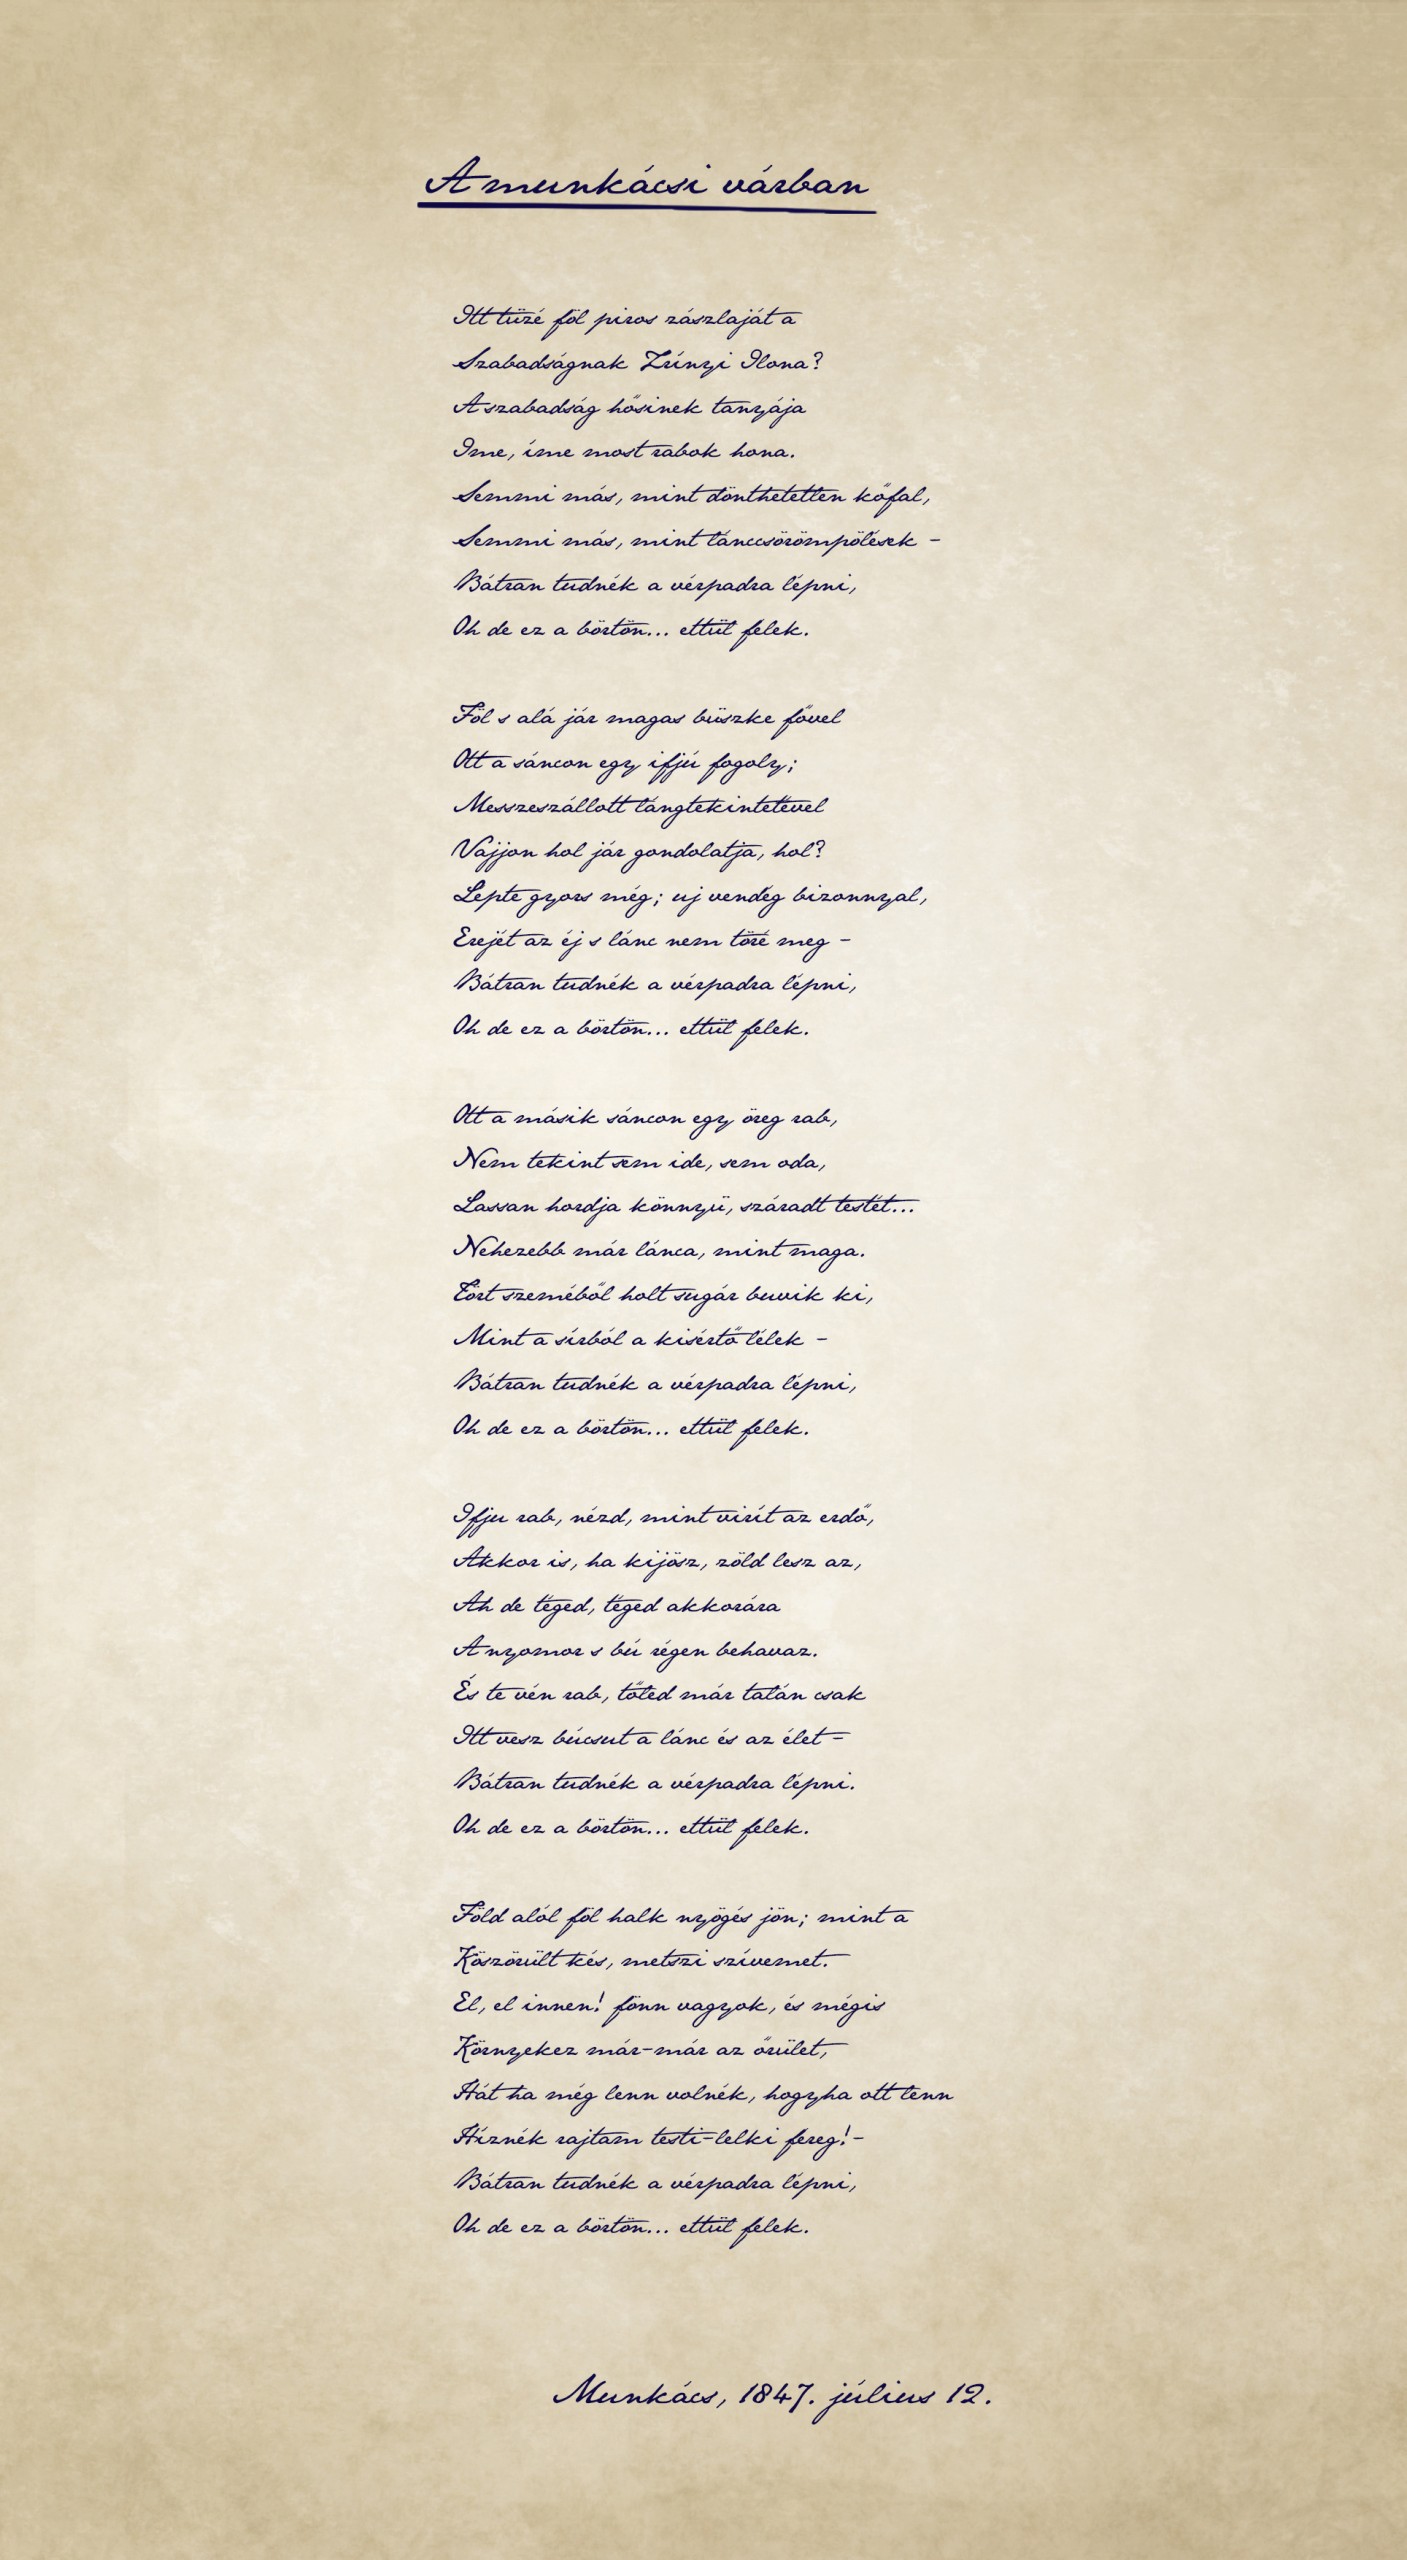 A munkácsi várban
Itt tüzé föl piros zászlaját a
Szabadságnak Zrínyi Ilona?
A szabadság hősinek tanyája
Ime, íme most rabok hona.
Semmi más, mint dönthetetlen kőfal,
Semmi más, mint lánccsörömpölések -
Bátran tudnék a vérpadra lépni,
Oh de ez a börtön... ettül felek.
Föl s alá jár magas büszke fővel
Ott a sáncon egy ifjú fogoly;
Messzeszállott lángtekintetével
Vajjon hol jár gondolatja, hol?
Lepte gyors még; uj vendég bizonnyal,
Erejét az éj s lánc nem töré meg -
Bátran tudnék a vérpadra lépni,
Oh de ez a börtön... ettül felek.
Ott a másik sáncon egy öreg rab,
Nem tekint sem ide, sem oda,
Lassan hordja könnyü, száradt testét...
Nehezebb már lánca, mint maga.
Tört szeméből holt sugár buvik ki,
Mint a sírból a kisértő lélek -
Bátran tudnék a vérpadra lépni,
Oh de ez a börtön... ettül felek.
Ifju rab, nézd, mint virít az erdő,
Akkor is, ha kijösz, zöld lesz az,
Ah de téged, téged akkorára
A nyomor s bú régen behavaz.
És te vén rab, tőled már talán csak
Itt vesz búcsut a lánc és az élet -
Bátran tudnék a vérpadra lépni.
Oh de ez a börtön... ettül felek.
Föld alól föl halk nyögés jön; mint a
Köszörült kés, metszi szívemet.
El, el innen! fönn vagyok, és mégis
Környekez már-már az őrület,
Hát ha még lenn volnék, hogyha ott lenn
Híznék rajtam testi-lelki fereg! -
Bátran tudnék a vérpadra lépni,
Oh de ez a börtön... ettül felek.
Munkács, 1847. július 12.